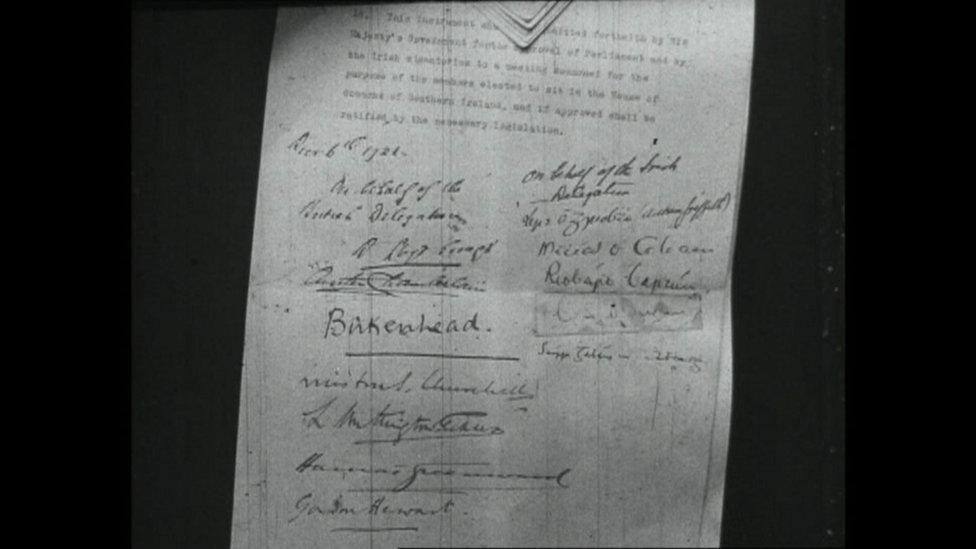 18. This instrument shall be submitted forthwith by His
Majesty's Government for the approval of Parliament and by
the Irish signatories to a meeting summoned for the
purpose of the members elected to sit in the House of
Commons of Southern Ireland, and if approved shall be
ratified by the necessary legislation.
Decr 6th 1921.
On behalf of the
British Delegation
D Lloyd George
Austen Chamberlain
Birkenhead.
Winston S. Churchill
L Worthington-Evans
Hamar Greenwood
Gordon Hewart.
On behalf of the Irish
Delegation
Art Ó Gríobhtha (Arthur Griffith)
Micheál Ó Coileain
Riobárd Bartún